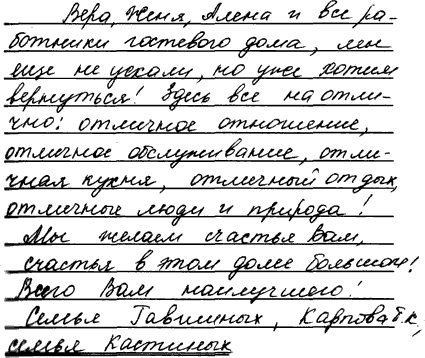 Вера, Женя, Алена и все ра-
ботники гостевого дома, мы
еще не уехали, но уже хотим
вернуться! Здесь все на отли-
чно: отличное отношение,
отличное обслуживание, отли-
чная кухня, отличный отдых,
отличные люди и природа!
Мы желаем счастья Вам,
счастья в этом доме большом!
Всего Вам наилучшего!
Семья Гавшиных, Карпова Т.К.,
семья Кастиных